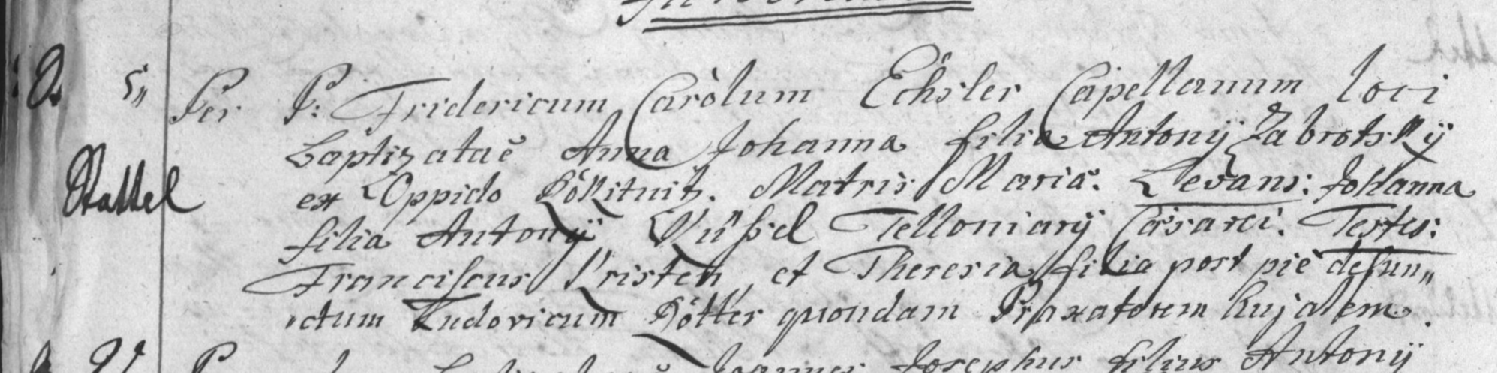 D. 5,, Per P: Fridericum Carolum Echsler Capellanum loci
baptizatae Anna Johanna filia Antonÿ Zabrotskÿ
Stattel ex Oppido Rokitnitz. Matris Maria. Levans: Johanna
filia Antonÿ Telloniarÿ Caesarei. Testes:
Franciscus Kristen, et Theresia filia post pie defun„
ctum Ludovicum Rötter quondam Braxatorem hujatem.
Joannes Josephus filius Antonÿ